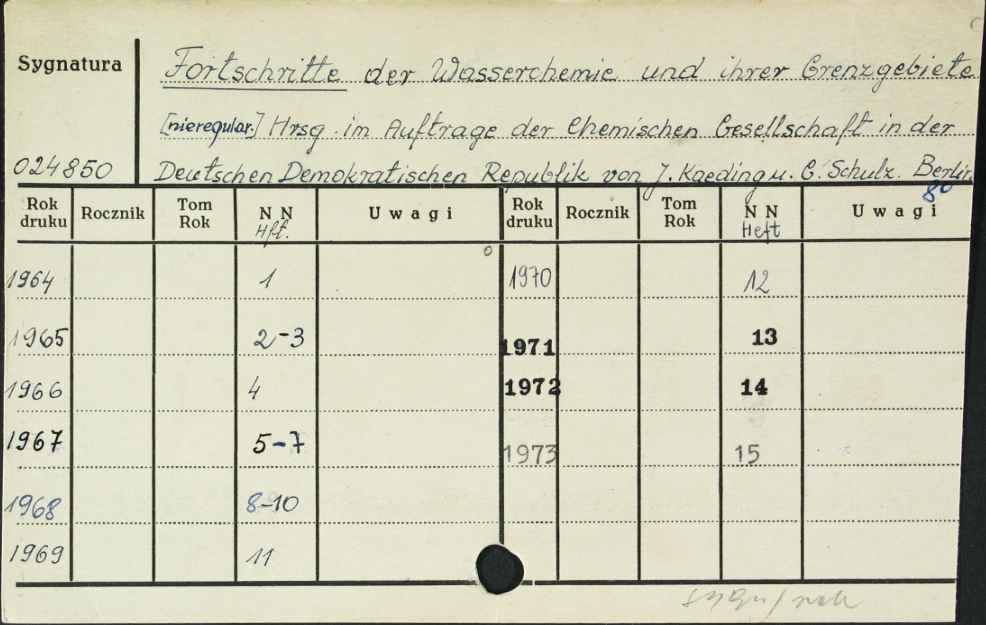 Sygnatura
Fortschritte der Wasserchemie und ihrer Grenzgebiete
[nieregular.] Hrsg. im Auftrage der Chemischen Gesellschaft in der
024850 Deutschen Demokratischen Republik von J. Kaeding u. G. Schulz. Berlin
8o
Rok druku Rocznik Tom Rok NN Hft. Uwagi Rok druku Rocznik Tom Rok NN Heft Uwagi
1964 1 1970 12
1965 2-3 1971 13
1966 4 1972 14
1967 5-7 1973 15
1968 8-10
1969 11